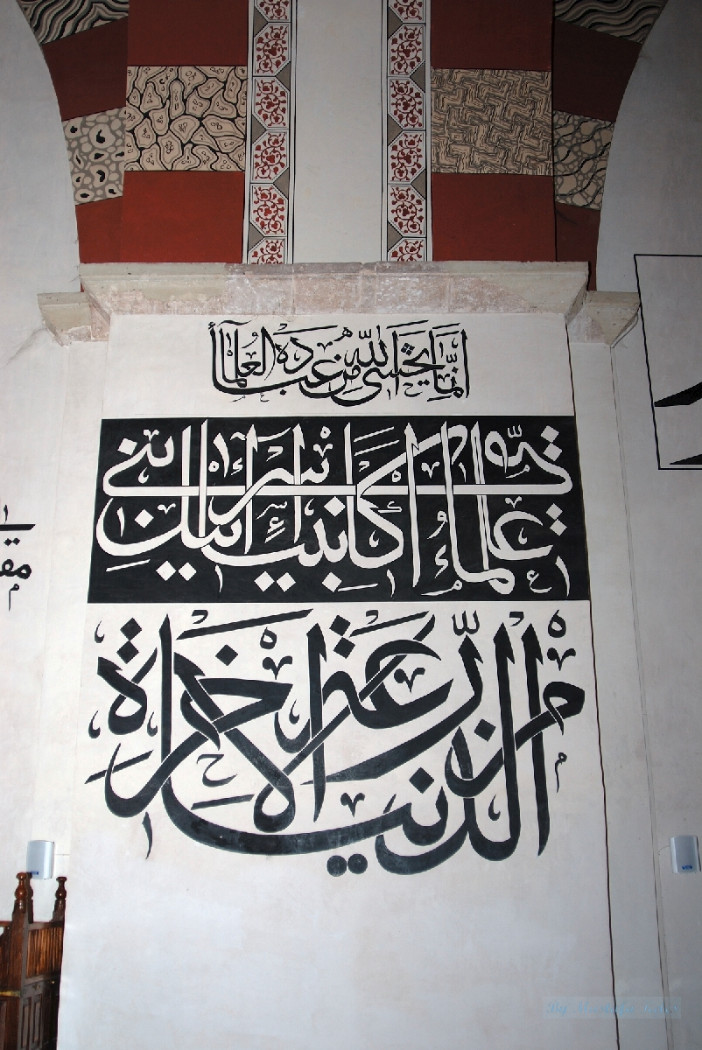 إنما يخشى الله من عباده العلماء
علماء أمتي كأنبياء بني إسرائيل
الدنيا مزرعة الآخرة